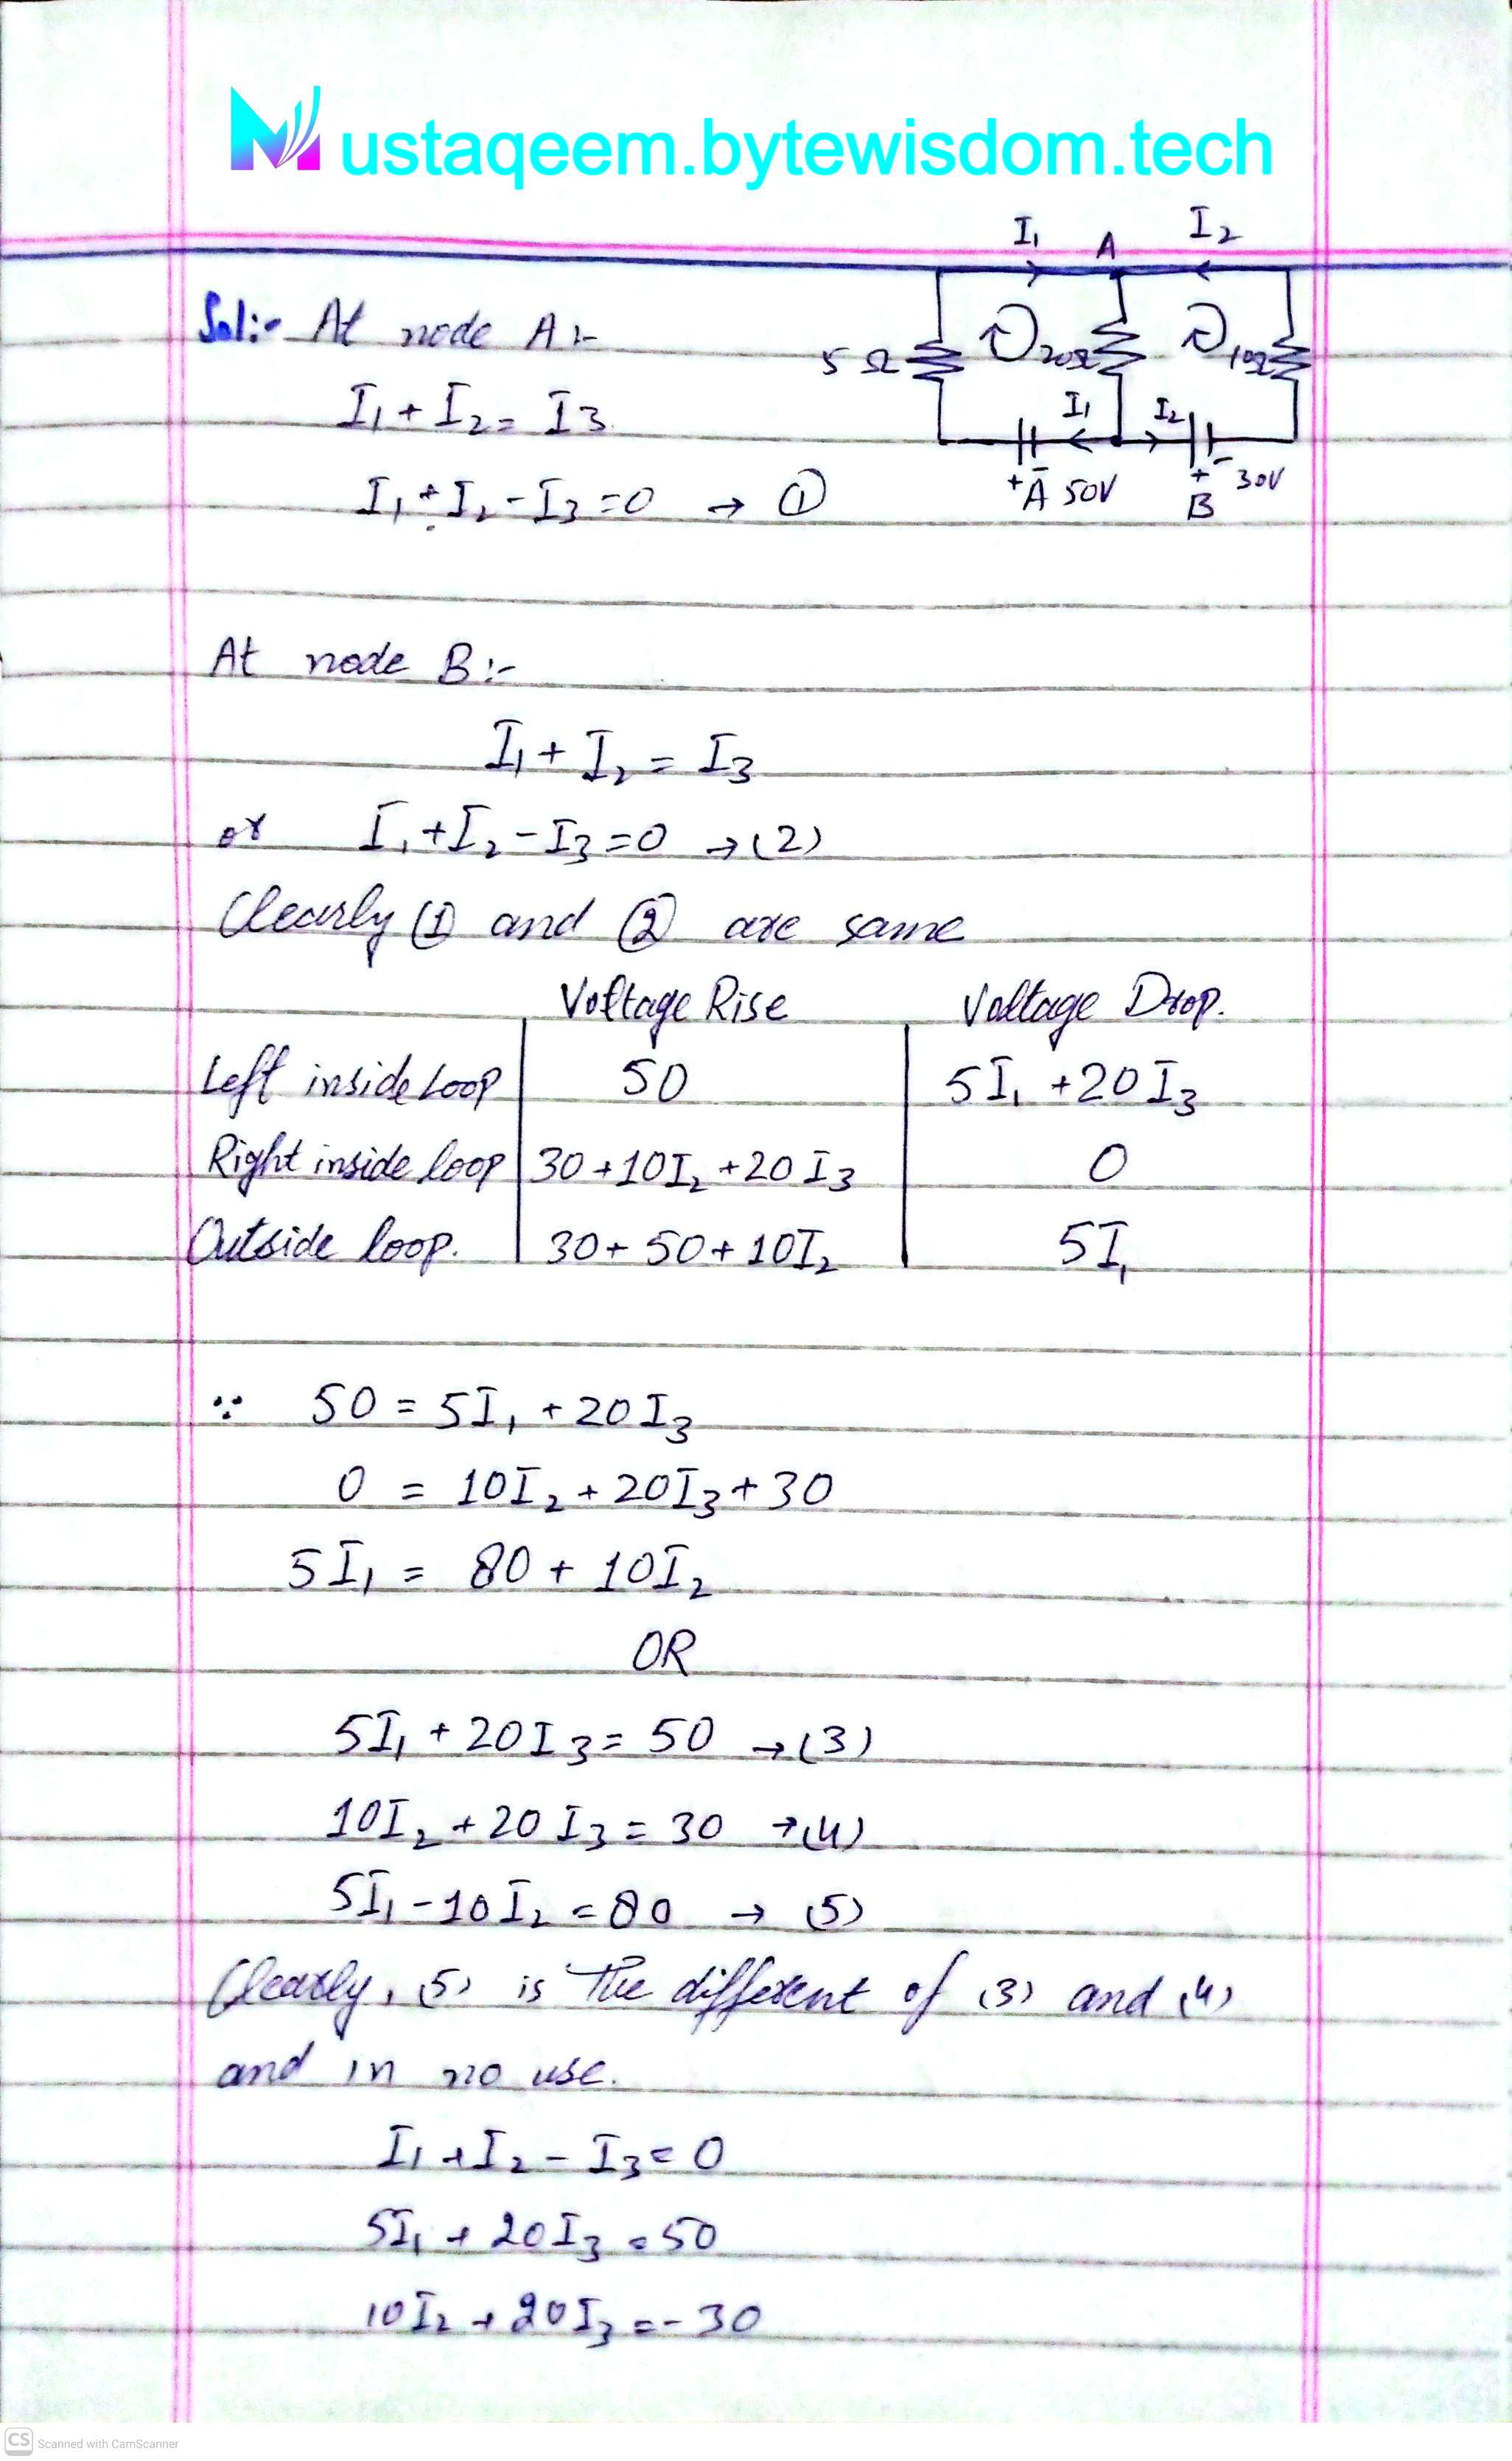 Mustaqeem.bytewisdom.tech
I₁ A I₂
Sol:- At node A:-
5Ω 20Ω 10Ω
I₁ + I₂ = I3
I₁ I₂
+ - + - 30V
A 50V B
I₁ + I₂ - I₃ = 0 → ①
At node B:-
I₁ + I₂ = I₃
or I₁ + I₂ - I₃ = 0 → (2)
Clearly ① and ② are same
Voltage Rise Voltage Drop.
Left inside Loop 50 5I₁ + 20I₃
Right inside loop 30 + 10I₂ + 20I₃ 0
Outside loop. 30 + 50 + 10I₂ 5I₁
∵ 50 = 5I₁ + 20I₃
0 = 10I₂ + 20I₃ + 30
5I₁ = 80 + 10I₂
OR
5I₁ + 20I₃ = 50 → (3)
10I₂ + 20I₃ = 30 → (4)
5I₁ - 10I₂ = 80 → (5)
Clearly, (5) is The different of (3) and (4)
and in no use.
I₁ + I₂ - I₃ = 0
5I₁ + 20I₃ = 50
10I₂ + 20I₃ = - 30
CS Scanned with CamScanner